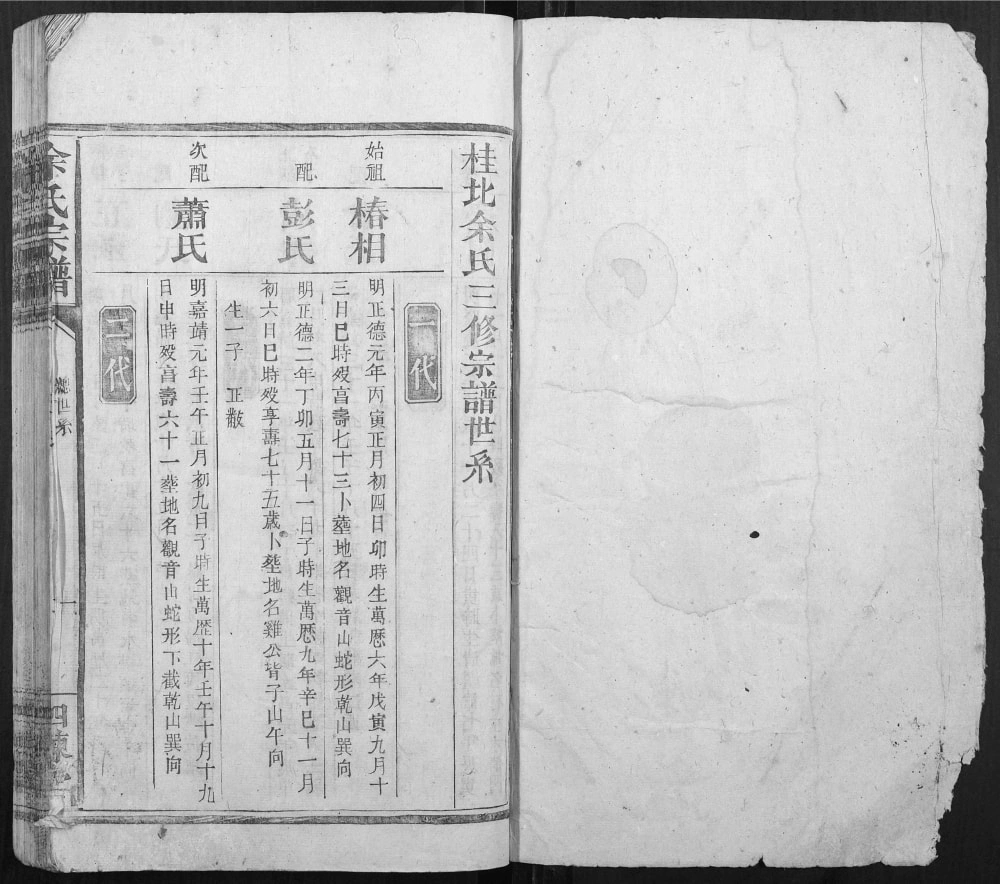 桂北余氏三修宗譜世系
一代
始祖 椿相
明正德元年丙寅正月初四日卯時生萬歷六年戊寅九月十
三日巳時殁享壽七十三卜塟地名觀音山蛇形乾山巽向
配 彭氏
明正德二年丁卯五月十一日子時生萬歷九年辛巳十一月
初六日巳時殁享壽七十五歲卜塟地名雞公背子山午向
生一子 正敝
次配 蕭氏
明嘉靖元年壬午正月初九日子時生萬歷十年壬午十月十九
日申時殁享壽六十一塟地名觀音山蛇形下截乾山巽向
二代
余氏宗譜
總世系
一
四